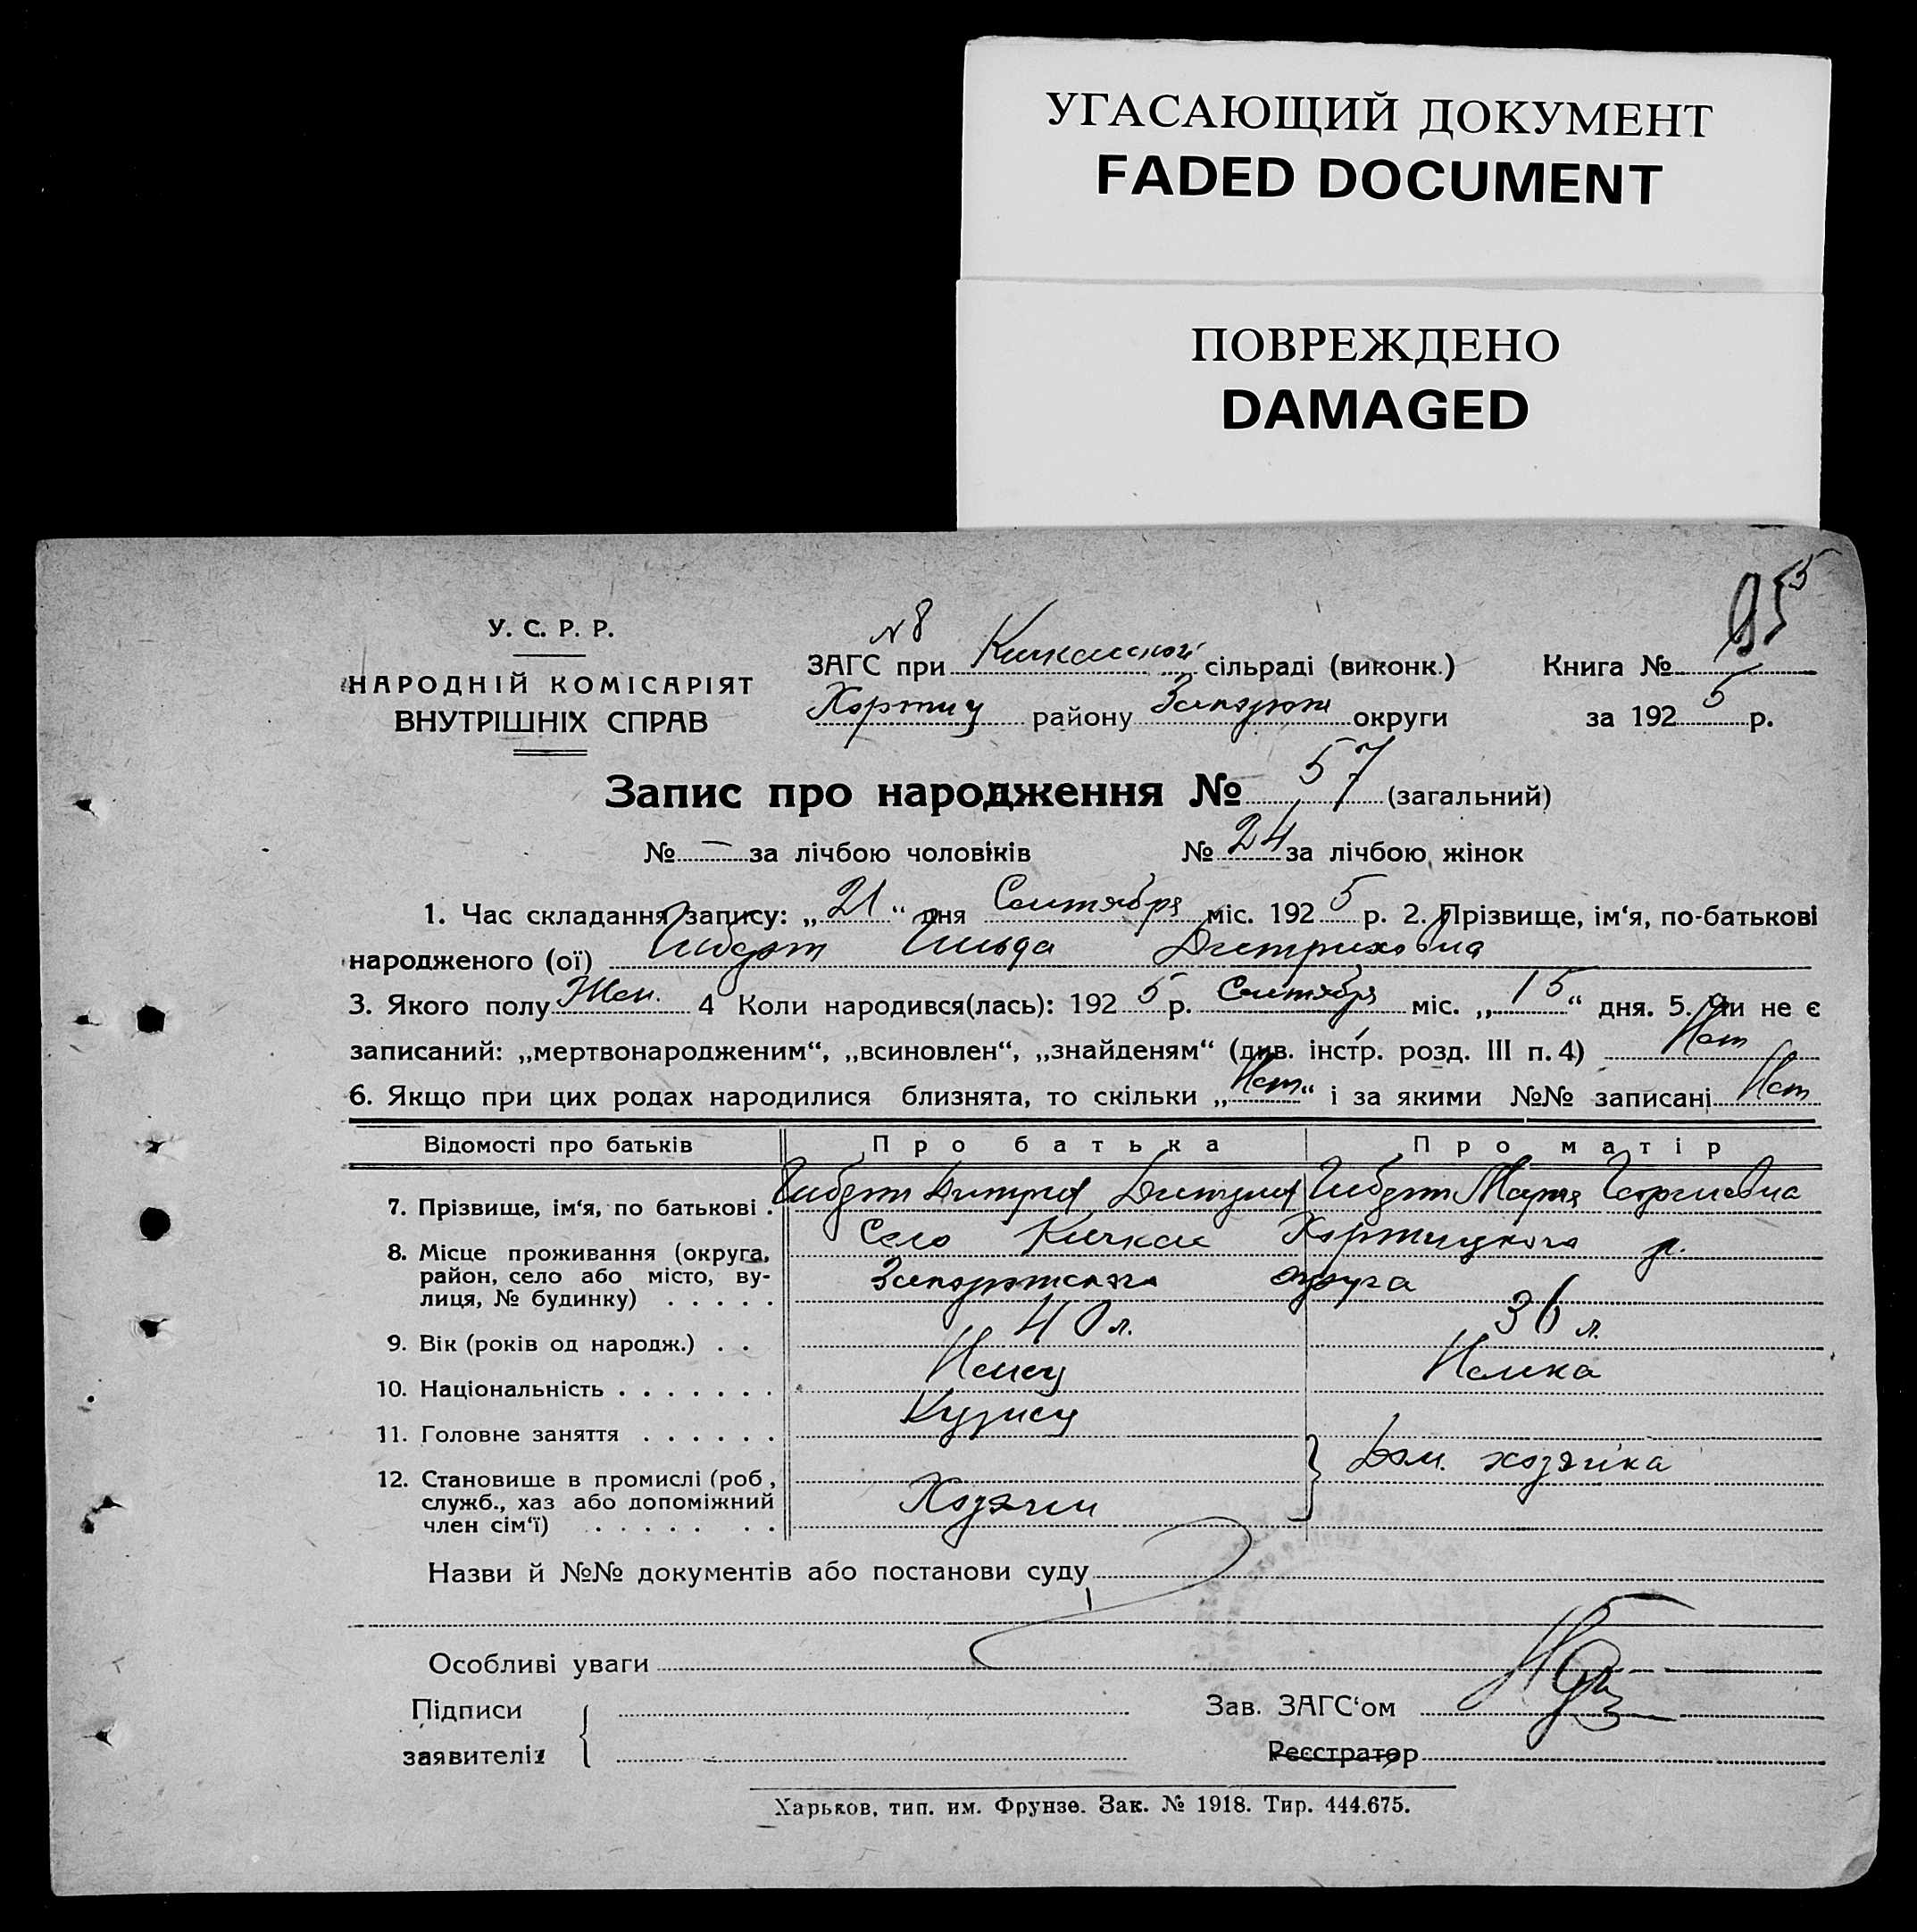 УГАСАЮЩИЙ ДОКУМЕНТ
FADED DOCUMENT
ПОВРЕЖДЕНО
DAMAGED
95
У. С. Р. Р.
НАРОДНІЙ КОМІСАРІЯТ
ВНУТРІШНІХ СПРАВ
N 8
ЗАГС при Кичкасской сільраді (виконк.) Книга №
Хортиц району Запорож округи за 192 5 р.
Запис про народження № 57 (загальний)
№ — за лічбою чоловіків № 24 за лічбою жінок
1. Час складання запису: „ 21 “ дня Сентября міс. 192 5 р. 2. Прізвище, ім‘я, по-батькові
народженого (ої) Гильда Дитриховна
3. Якого полу Жен. 4 Коли народився(лась): 192 5 р. Сентября міс. „ 15 “ дня. 5. Чи не є
записаний: „мертвонародженим“, „всиновлен“, „знайденям“ (див. інстр. розд. III п. 4) Нет
6. Якщо при цих родах народилися близнята, то скільки „ Нет “ і за якими №№ записані Нет
Відомості про батьків Про батька Про матір
7. Прізвище, ім‘я, по батькові . Дитрих Дитрих Мария Георгиевна
8. Місце проживання (округа, район, село або місто, вулиця, № будинку) . . . . . Село Кичкас Хортицкого р.
Запорожского округа
9. Вік (років од народж.) . . 40 л. 36 л.
10. Національність . . . . . . . Немец Немка
11. Головне заняття . . . . . . Кузнец
12. Становище в промислі (роб., служб., хаз або допоміжний член сім‘ї) . . . . . . . Хозяин Дом. хозяйка
Назви й №№ документів або постанови суду
Особливі уваги
Підписи
заявителів
Зав. ЗАГС‘ом
Реєстратор
Харьков, тип. им. Фрунзе. Зак. № 1918. Тир. 444.675.